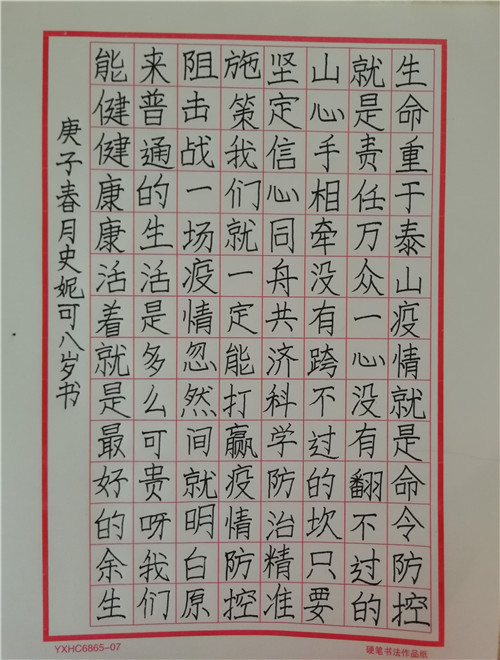 生命重于泰山疫情就是命令防控
就是责任万众一心没有翻不过的
山心手相牵没有跨不过的坎只要
坚定信心同舟共济科学防治精准
施策我们就一定能打赢疫情防控
阻击战一场疫情忽然间就明白原
来普通的生活是多么可贵呀我们
能健健康康活着就是最好的余生
庚子春月史妮可八岁书
YXHC6865-07
硬笔书法作品纸